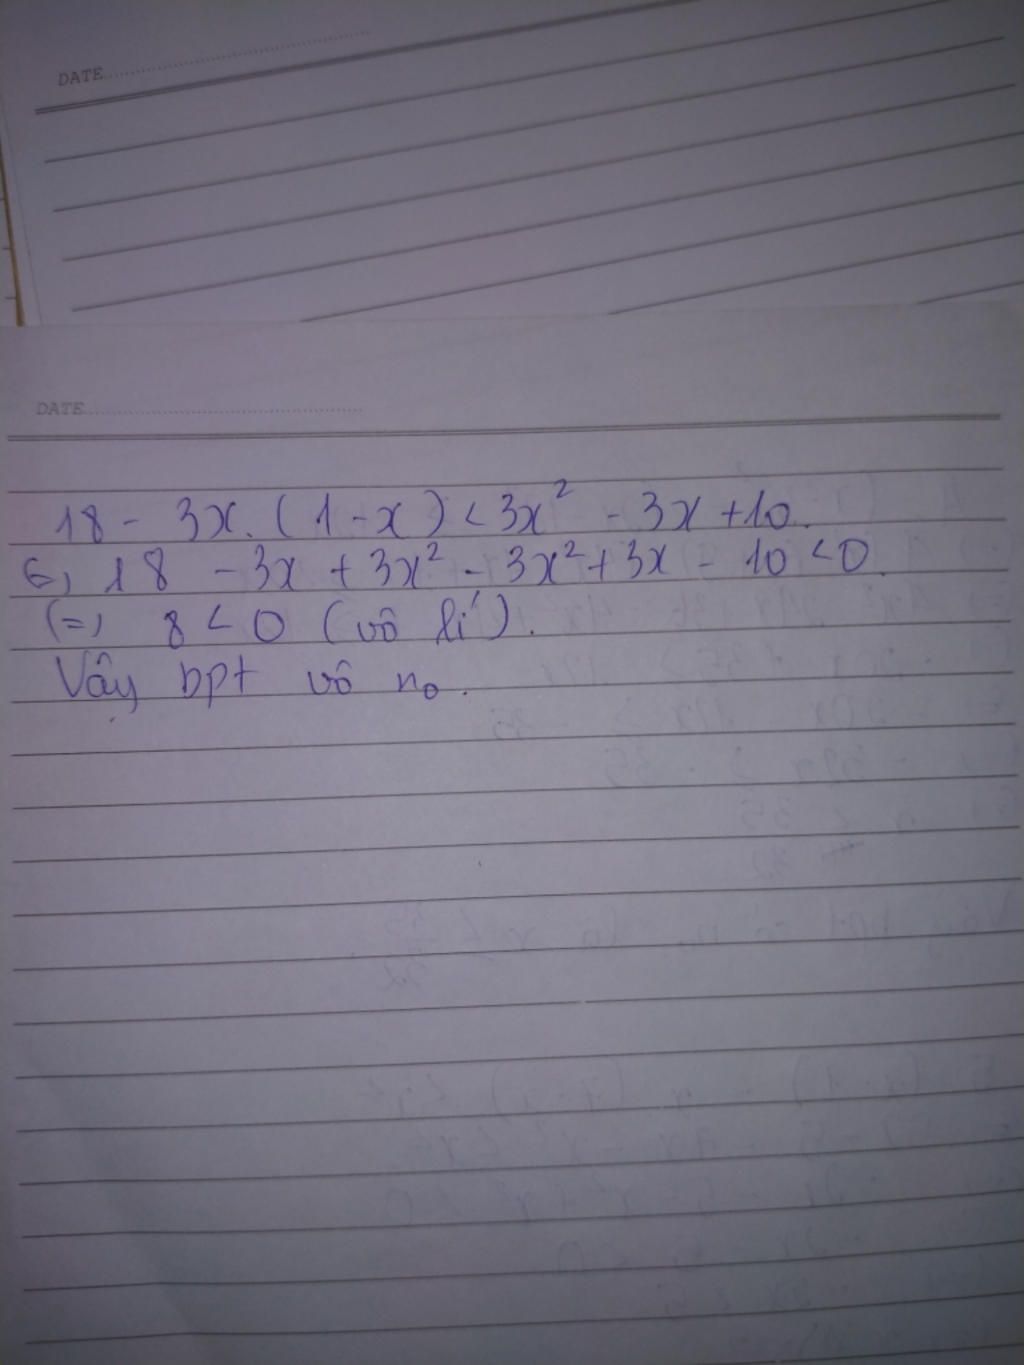 DATE
DATE
18 - 3x.(1-x) < 3x² - 3x +10.
(=) 18 - 3x + 3x² - 3x² + 3x - 10 < 0.
(=) 8 < 0 (vô lí).
Vây bpt vô no.